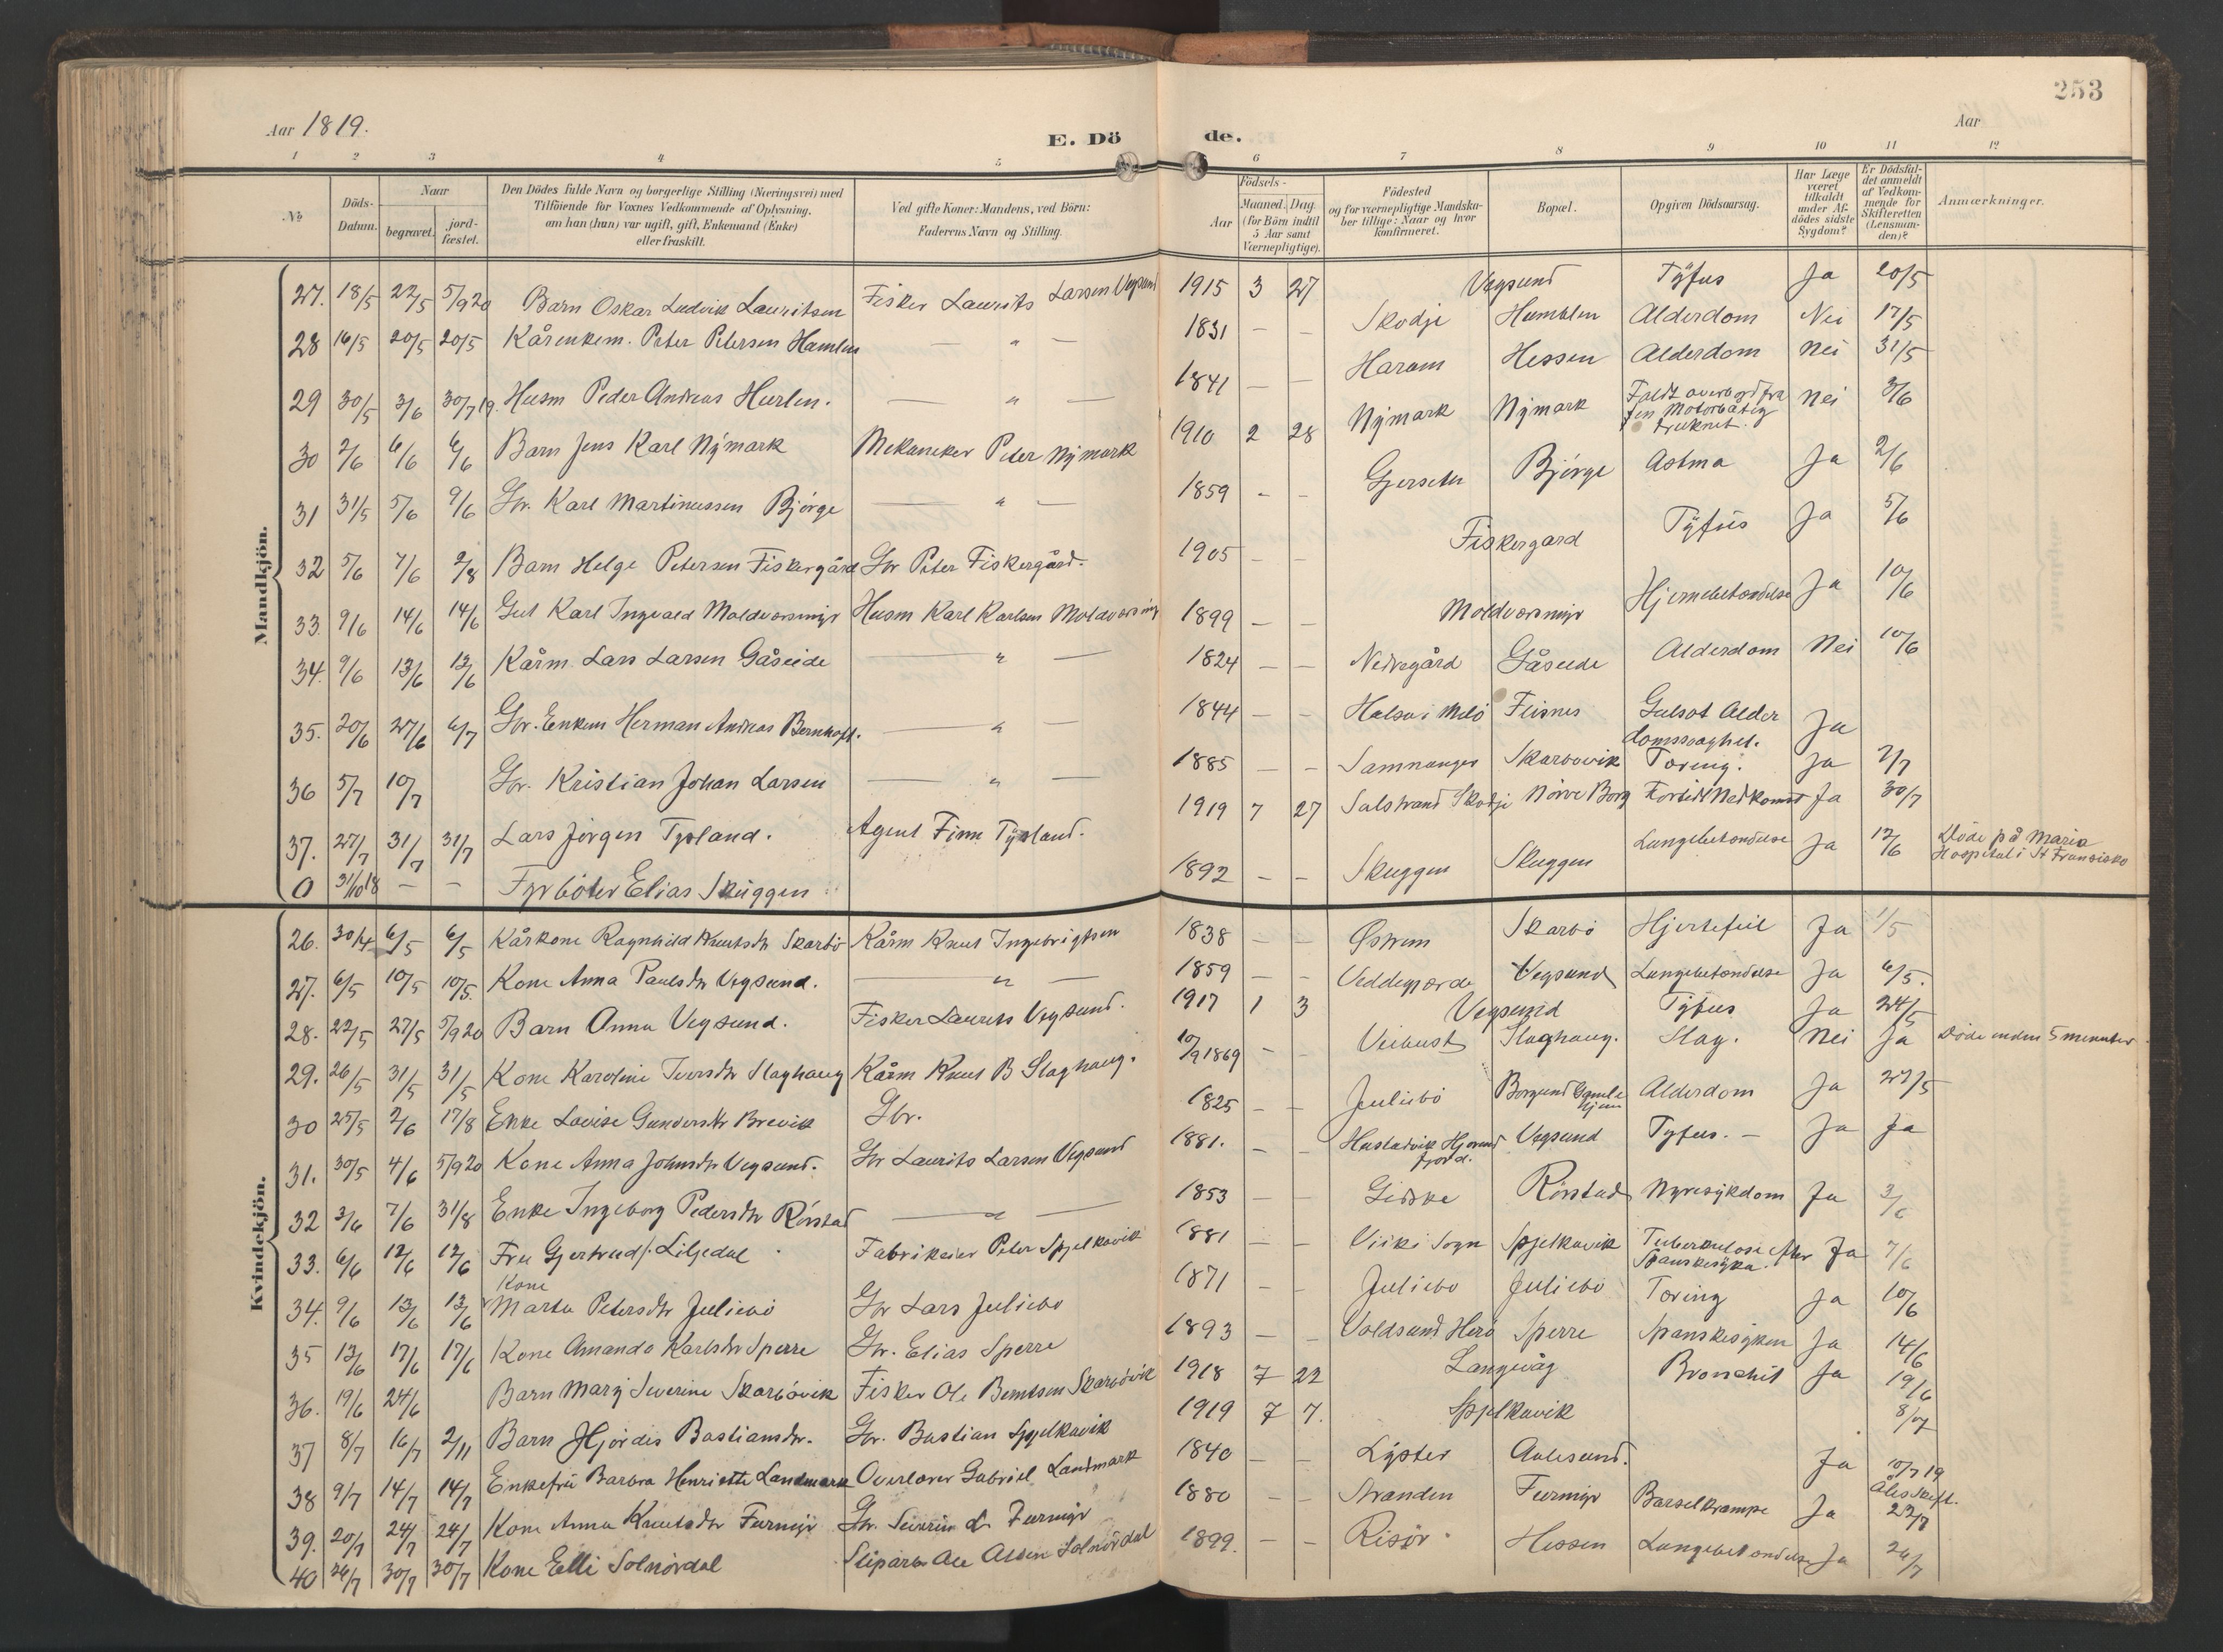 253
Aar 1819.
E. Dö
de.
Aar
1 2 3 4 5 6 7 8 9 10 11 12
No
Döds-Datum.
Naar
begravet.
jord-fæstet.
Den Dödes fulde Navn og borgerlige Stilling (Næringsvei) med
Tilföiende for Voxnes Vedkommende af Oplysning.
om han (hun) var ugift, gift, Enkemand (Enke)
eller fraskilt.
Ved gifte Koner: Mandens, ved Börn:
Faderens Navn og Stilling.
Födsels-
Aar
Maaned. Dag
(for Börn indtil
5 Aar samt
Værnepligtige).
Födested
og for værnepligtige Mandska-
ber tillige: Naar og hvor
konfirmeret.
Bopæl.
Opgiven Dödsaarsag.
Har Læge
været
tilkaldt
under Af-
dödes sidste
Sygdom?
Er Dödsfal-
det anmeldt
af Vedkom-
mende for
Skifteretten
(Lensman-
den)?
Anmærkninger.
Mandkjön.
27. 18/5 22/5 5/9 20 Barn Oskar Ludvik Lauritsen Fisker Laurits Larsen Vegsund 1915 3 27 Vegsund Tÿfus Ja 20/5
28 16/5 20/5 20/5 Kårenkem. Peter Petersen Hamlen — " — 1831 — — Skodje Humblen Alderdom Nei 17/5
29 30/5 3/6 30/7 19. Husm Peder Andreas Hurlen. — " — 1841 — — Haram Hessen Alderdom Nei 31/5
30 2/6 6/6 6/6 Barn Jens Karl Nÿmark Mekaneker Peter Nÿmark 1910 2 28 Nÿmark Nÿmark Faldt overbord fra
en Motorbåt og
druknet. Nei 3/6
31 31/5 5/6 9/6 Gbr. Karl Martinussen Björge — " — 1859 - - Gjerseter Björge Astma Ja 2/6
32 5/6 7/6 2/8 Barn Helge Petersen Fiskergård Gbr Peter Fiskergård. 1905 — — Fiskergard Tÿfus Ja 5/6
33. 9/6 14/6 14/6 Gut Karl Ingvald Moldversmyr Husm Karl Karlsen Moldversmyr 1899 — — Moldversmyr Hjernebetændelse Ja 10/6
34. 9/6 13/6 13/6 Kårm. Lars Larsen Gåseide — " — 1824 — — Nedregård Gåseide Alderdom Nei 10/6
35. 20/6 27/6 6/7 Gbr. Enkem Herman Andreas Bernhoft. — " — 1844 — — Halsa i Melö Flisnes Gulsot Alder
domssvaghet. Ja
36 5/7 10/7 Gbr. Kristian Johan Larsen — " — 1885 — — Samnanger Skarbövik Tæring. Ja 7/7
37. 27/7 31/7 31/7 Lars Jörgen Tysland. Agent Finn Tÿsland. 1919 7 27 Salstrand Skodje Nörve Borg Fortidl Nedkomst Ja 30/7
0 31/10 18 — — Fyrböter Elias Skuggen 1892 — — Skuggen Skuggen Lungebetændelse Ja 12/6 Döde på Maria
Hospital i St Fransisko
Kvindekjön.
26. 30/4 6/5 6/5 Kårkone Ragnhild Knutsdr Skarbö Kårm Knut Ingebrigtsen 1838 — — Östrem Skarbö Hjertefeil Ja 1/5
27. 6/5 10/5 10/5. Kone Anna Paulsdr Vegsund. — " — 1859 — — Veddegjærde Vegsund Lungebetændelse Ja 6/5.
28. 22/5 27/5 5/9 20 Barn Anna Vegsund. Fisker Laurits Vegsund. 1917 1 3 Vegsund Tÿfus Ja 24/5
29. 26/5 31/5 31/5 Kone Karoline Iversdr Slaghaug Kårm Knut B Slaghaug. 10/9 1869 - - Viebust Slaghaug. Slag. Nei Ja Döde inden 5 minuter.
30 25/5 2/6 17/8 Enke Lovise Gundersdr Brevik Gbr. 1825 — — Juliebö Borgund Gamle
hjem Alderdom Ja 27/5
31. 30/5 4/6 5/9 20 Kone Anna Johnsdr Vegsund. Gbr Laurits Larsen Vegsund 1881. — — Hustadvik Hjörund
fjord. Vegsund Tyfus. — Ja Ja
32 3/6 7/6 31/8 Enke Ingeborg Pedersdr Rörstad — " — 1853 — — Giske Rörstad Nyresÿkdom Ja 3/6
33. 6/6 12/6 12/6 Fru Gjertrud f. Liljedal Fabrikeier Peter Spjelkavik 1881 — — Viiki Sogn Spjelkavik Tuberkulose efter
Spanskesÿka. Ja 7/6
34. 9/6 13/6 13/6 Kone
Marta Petersdtr Juliebö Gbr Lars Juliebö 1871 — — Juliebö Juliebö Tæring Ja 10/6
35 13/6 17/6 17/6 Kone Amanda Karlsdr Sperre Gbr. Elias Sperre 1893 — — Voldsund Herö Sperre Spanskesÿken Ja 14/6
36. 19/6 24/6 Barn Marÿ Severine Skarbövik Fisker Ole Berntsen Skarbövik 1918 7 22 Langevåg Bronchit Ja 19/6
37 8/7 16/7 2/11 Barn Hjördis Bastiansdr. Gbr. Bastian Spjelkavik 1919 7 7. Spjelkavik 8/7
38 9/7 14/7 14/7 Enkefru Barbra Henriette Landmark Overlærer Gabriel Landmark 1840 — — Lÿster Aalesund. Ja 10/7 19
Åles Skift.
39. 20/7 24/7 24/7 Kone Anna Knutsdr Furmyr Gbr. Severin L. Furmyr 1880 — — Stranden Furmyr Barselkrampe Ja 22/7
40 26/7 30/7 30/7 Kone Elli Solnördal Sliparb. Ole Olsen Solnördal 1899. — — Risör. Hessen Lungebetændelse Ja 26/7